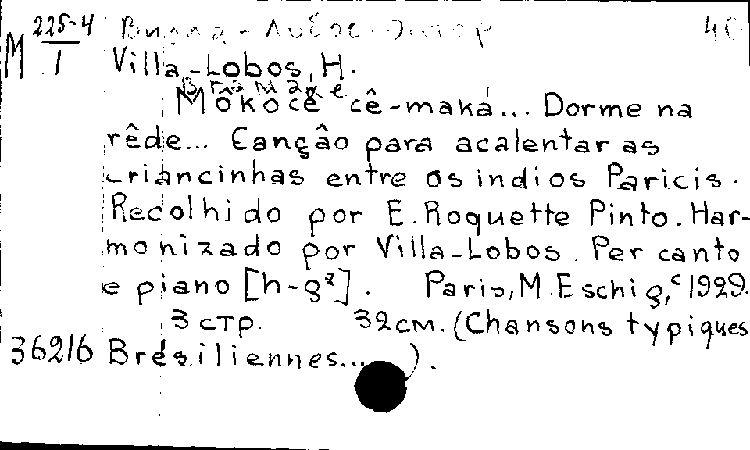 М 225-4 / 1
Вилла-Лобос, Эйтор
Villa-Lobos, H.
Môkôcê cê-maká... Dorme na
rêde... Canção para acalentar as
criancinhas entre os indios Paricis.
Recolhido por E. Roquette Pinto. Har-
monizado por Villa-Lobos. Per canto
e piano [h-g²]. Paris, M. Eschig, ᶜ1929.
3 стр. 32 см. (Chansons typiques
36216 Brésiliennes....).